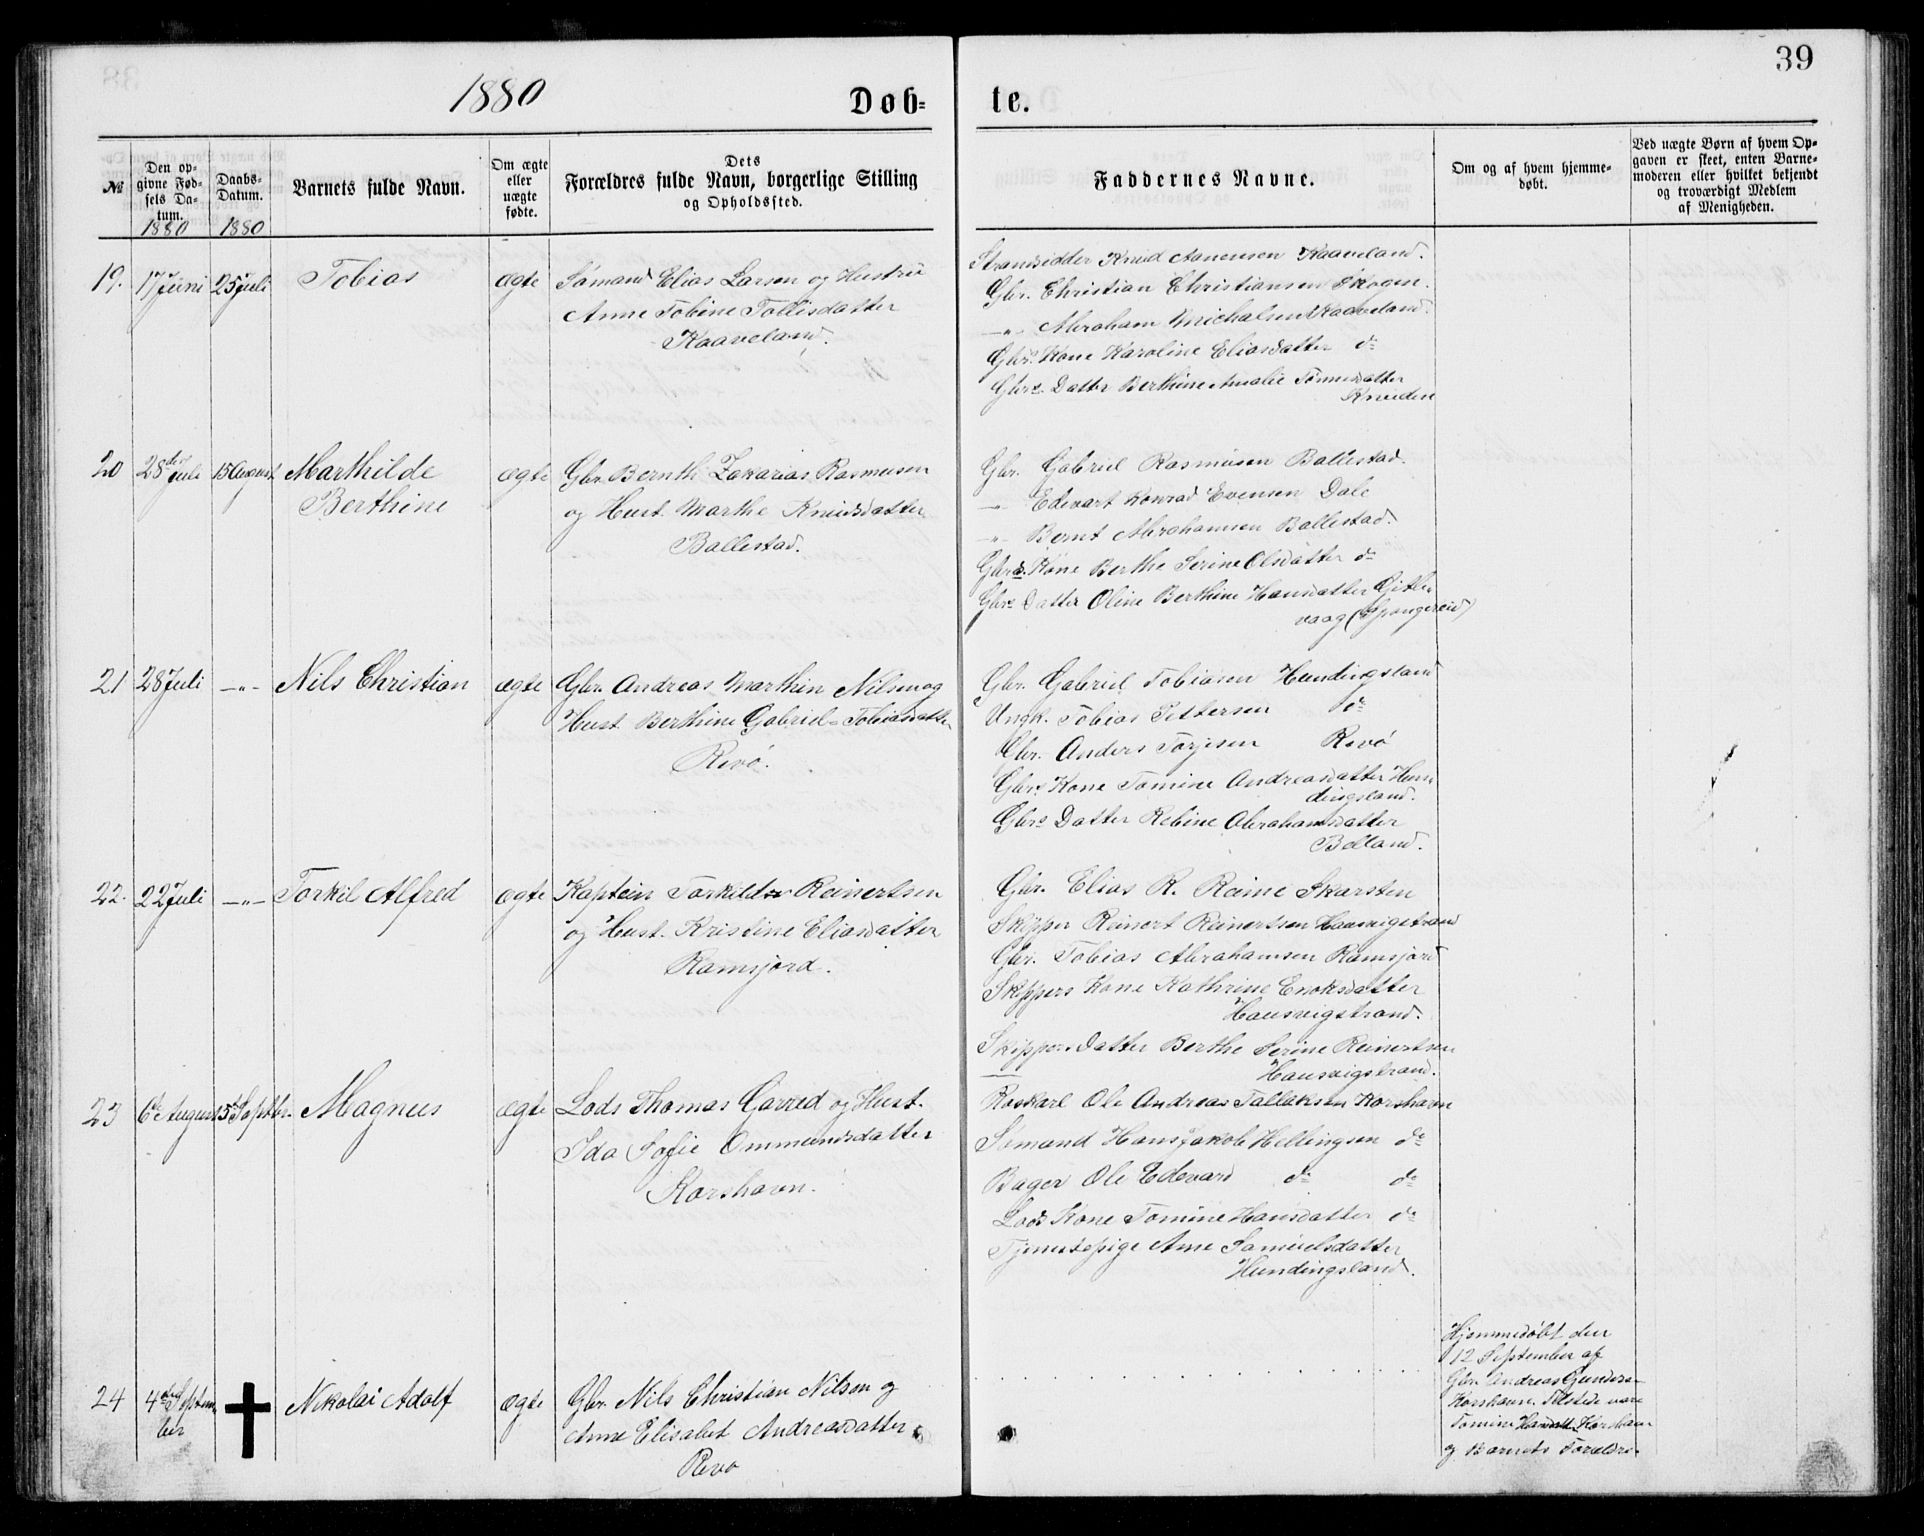 39
1880 Døb- te.
№
Den op-
givne Fød-
sels Da-
tum.
1880
Daabs-
Datum.
1880
Barnets fulde Navn.
Om ægte
eller
uægte
fødte.
Dets
Forældres fulde Navn, borgerlige Stilling
og Opholdssted.
Faddernes Navne.
Om og af hvem hjemme-
døbt.
Ved uægte Børn af hvem Op-
gaven er skeet, enten Barne-
moderen eller hvilket bekjendt
og troværdigt Medlem
af Menigheden.
19. 17 Juni 25 Juli Tobias ægte Sømand Elias Larsen og Hustru
Anne Tobine Tollisdatter
Kaaveland.
Strandsidder Knud Aanensen Kaaveland.
Gbr. Christian Christiansen Skogen.
—"— Abraham Michalsen Kaaveland.
Gbrs. Kone Karoline Eliasdatter do
Gbrs. Datter Berthine Amalie Tønnesdatter
Knueden
20 28de Juli 15 August Marthilde
Berthine
ægte Gbr. Bernth Zakarias Rasmusen
og Hust. Marthe Knudsdatter
Ballestad.
Gbr. Gabriel Rasmusen Ballestad.
—"— Edevart Konrad Evensen Dale
—"— Bernt Abrahamsen Ballestad.
Gbrs. Kone Berthe Serine Olsdatter do
Gbrs Datter Oline Berthine Hansdatter Gitle-
vaag (Spangereid)
21 28 Juli —"— Nils Christian ægte Gbr. Andreas Marthin Nilsen og
Hust. Berthine Gabriel- Tobiasdatter
Revø.
Gbr. Gabriel Tobiasen Hundingsland
Ungk. Tobias Pettersen do
Gbr. Anders Torjesen Revø
Gbrs Kone Tomine Andreasdatter Hun
dingsland.
Gbrs Datter Rebine Abrahamsdatter
Belland.
22. 22 Juli —"— Torkil Alfred ægte Kaptein Torkild Reinertsen
og Hust. Kristine Eliasdatter
Ramsjord.
Gbr. Elias R. Reime Skarsten
Skipper Reinert Reinertsen Haasvigstrand
Gbr. Tobias Abrahamsen Ramsjord
Skippers Kone Kathrine Enoksdatter
Haasvigstrand.
Skippers Datter Berthe Serine Reinertsen
Haasvigstrand.
23 6te August 5te Septbr. Magnus ægte Lods Thomas Garred og Hust.
Ida Sofie Ommundsdatter
Korshavn.
Roskarl Ole Andreas Tallaksen Korshavn
Sømand Hans Jakob Hellingsen do
Bager Ole Edevard do do
Lods Kone Tomine Hansdatter do
Tjenestepige Ane Samuelsdatter
Hundingsland.
24 4de Septem-
ber
Nikolai Adolf ægte Gbr. Nils Christian Nilsen og
Anne Elisabet Andreasdatter
Revø
Hjemmedøbt den
12 September af
Gbr. Andreas Gunders-
Korshavn. Tilstede vare
Tomine Hansdtt. Korshavn
og Barnets Forældre.